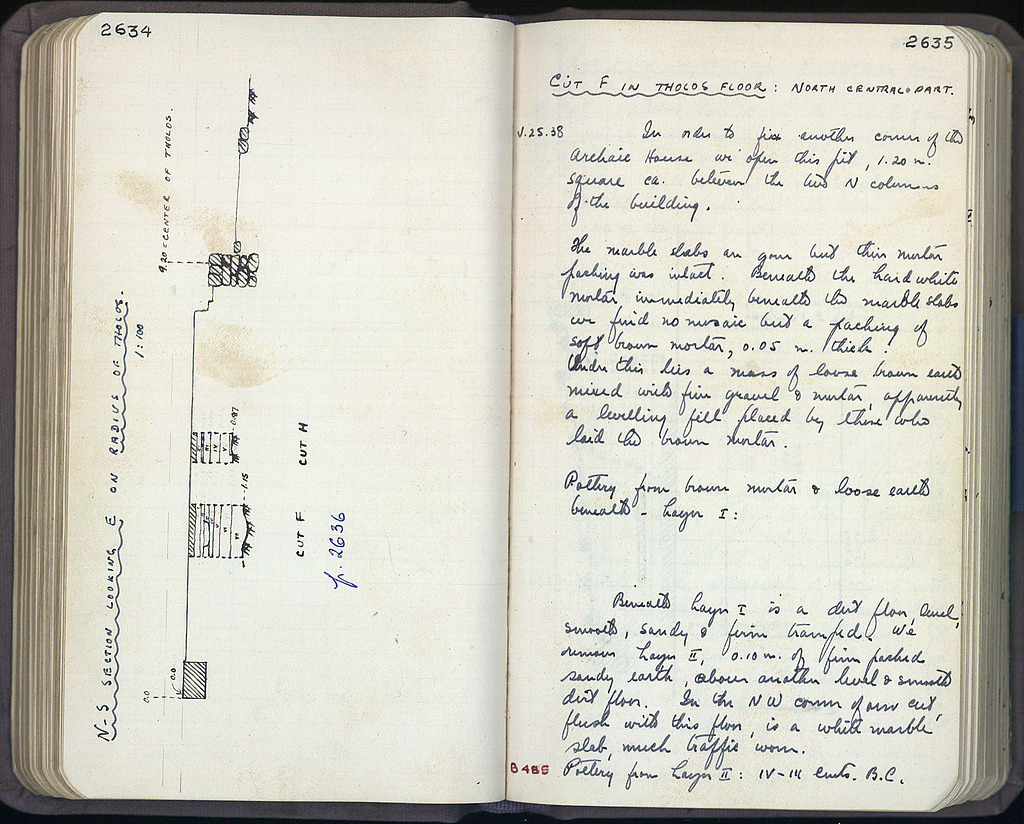 2634
N-S SECTION LOOKING E ON RADIUS OF THOLOS.
1:100
9.20 = CENTER OF THOLOS.
0.0
0.0
-0.87
-1.15
CUT H
CUT F
p. 2636
2635
CUT F IN THOLOS FLOOR : NORTH CENTRAL PART.
V.25.38
In order to fix another corner of the
Archaic House we open this pit, 1.20 m.
square ca. between the two N columns
of the building.
The marble slabs are gone but their mortar
packing was intact. Beneath the hard white
mortar immediately beneath the marble slabs
we find no mosaic but a packing of
soft brown mortar, 0.05 m. thick.
Under this lies a mass of loose brown earth
mixed with fine gravel & mortar, apparently
a levelling fill placed by those who
laid the brown mortar.
Pottery from brown mortar & loose earth
beneath - Layer I :
Beneath Layer I is a dirt floor, level,
smooth, sandy & firm tramped. We
remove Layer II, 0.10 m. of firm packed
sandy earth, above another level & smooth
dirt floor. In the NW corner of our cut,
flush with this floor, is a white marble
slab, much traffic worn.
B 486
Pottery from Layer II : IV-III cents. B.C.